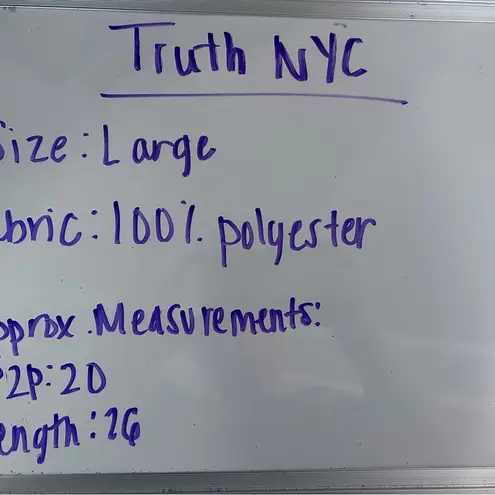 Truth NYC
Size: Large
abric: 100% polyester
pprox. Measurements:
P2P: 20
ength: 26